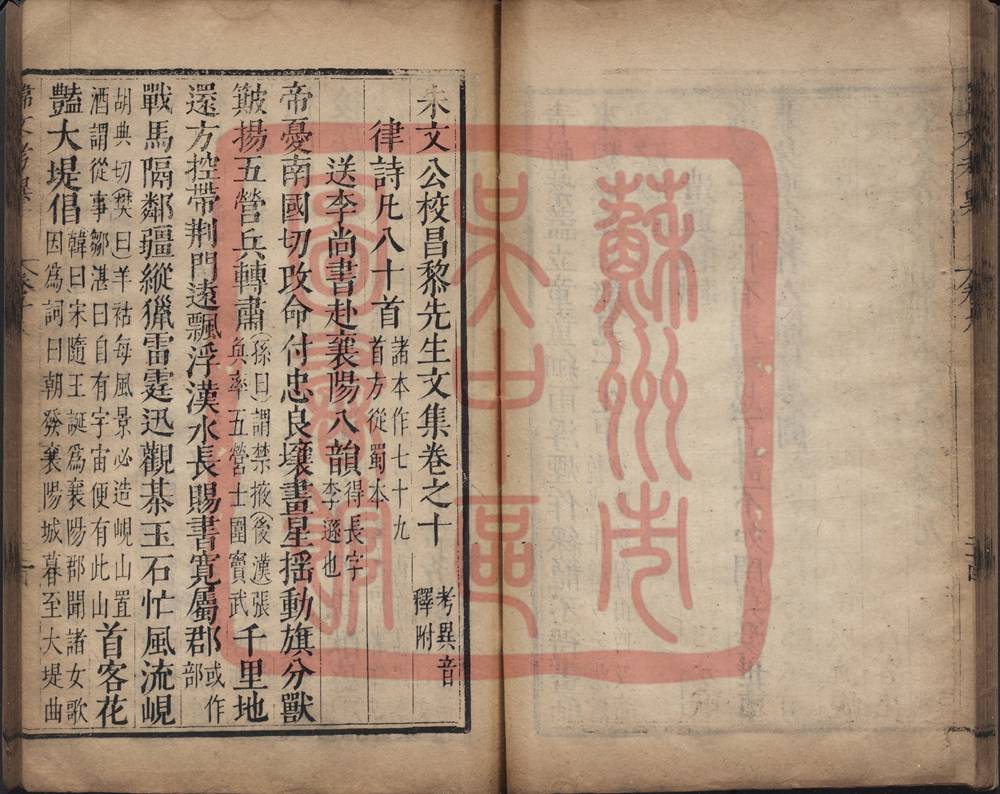 朱文公校昌黎先生文集卷之十 考異音釋附
律詩凡八十首 諸本作七十九首方從蜀本
送李尚書赴襄陽八韻 得長字李遜也
帝憂南國切改命付忠良壤畫星揺動旗分獸
簸揚五營兵轉肅 孫曰謂禁掖後漢張奐率五營士圍竇武 千里地
還方控帶荆門遠飄浮漢水長賜書寛屬郡 或作部
戰馬隔鄰疆縱獵雷霆迅觀棊玉石忙風流峴
胡典切樊曰羊祜每風景必造峴山置酒謂從事鄒湛曰自有宇宙便有此山 首客花
豔大堤倡 韓曰宋隨王誕爲襄陽郡聞諸女歌因爲詞曰朝發襄陽城暮至大堤曲
蘇州市
吳中區
圖書館